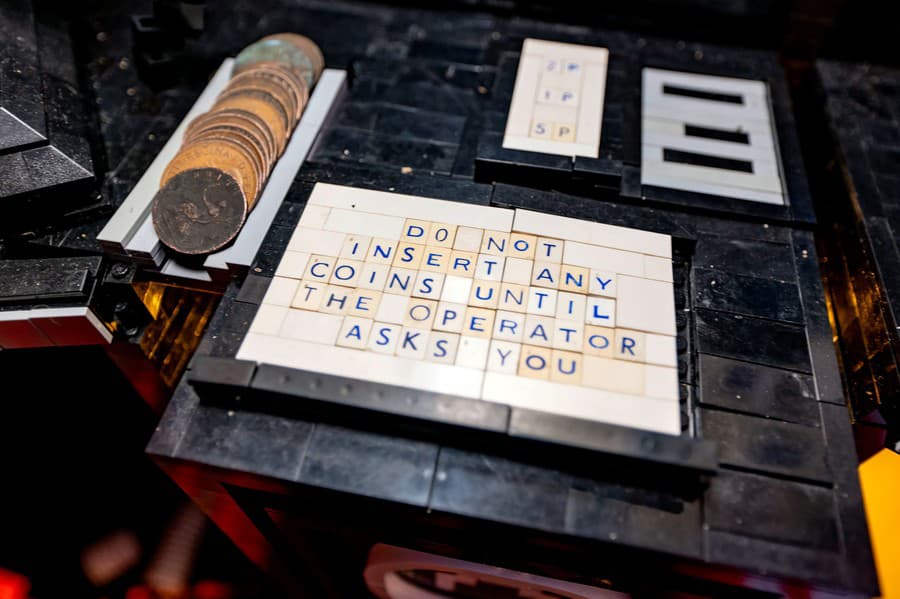 2P
1P
5P
DO NOT
INSERT ANY
COINS UNTIL
THE OPERATOR
ASKS YOU